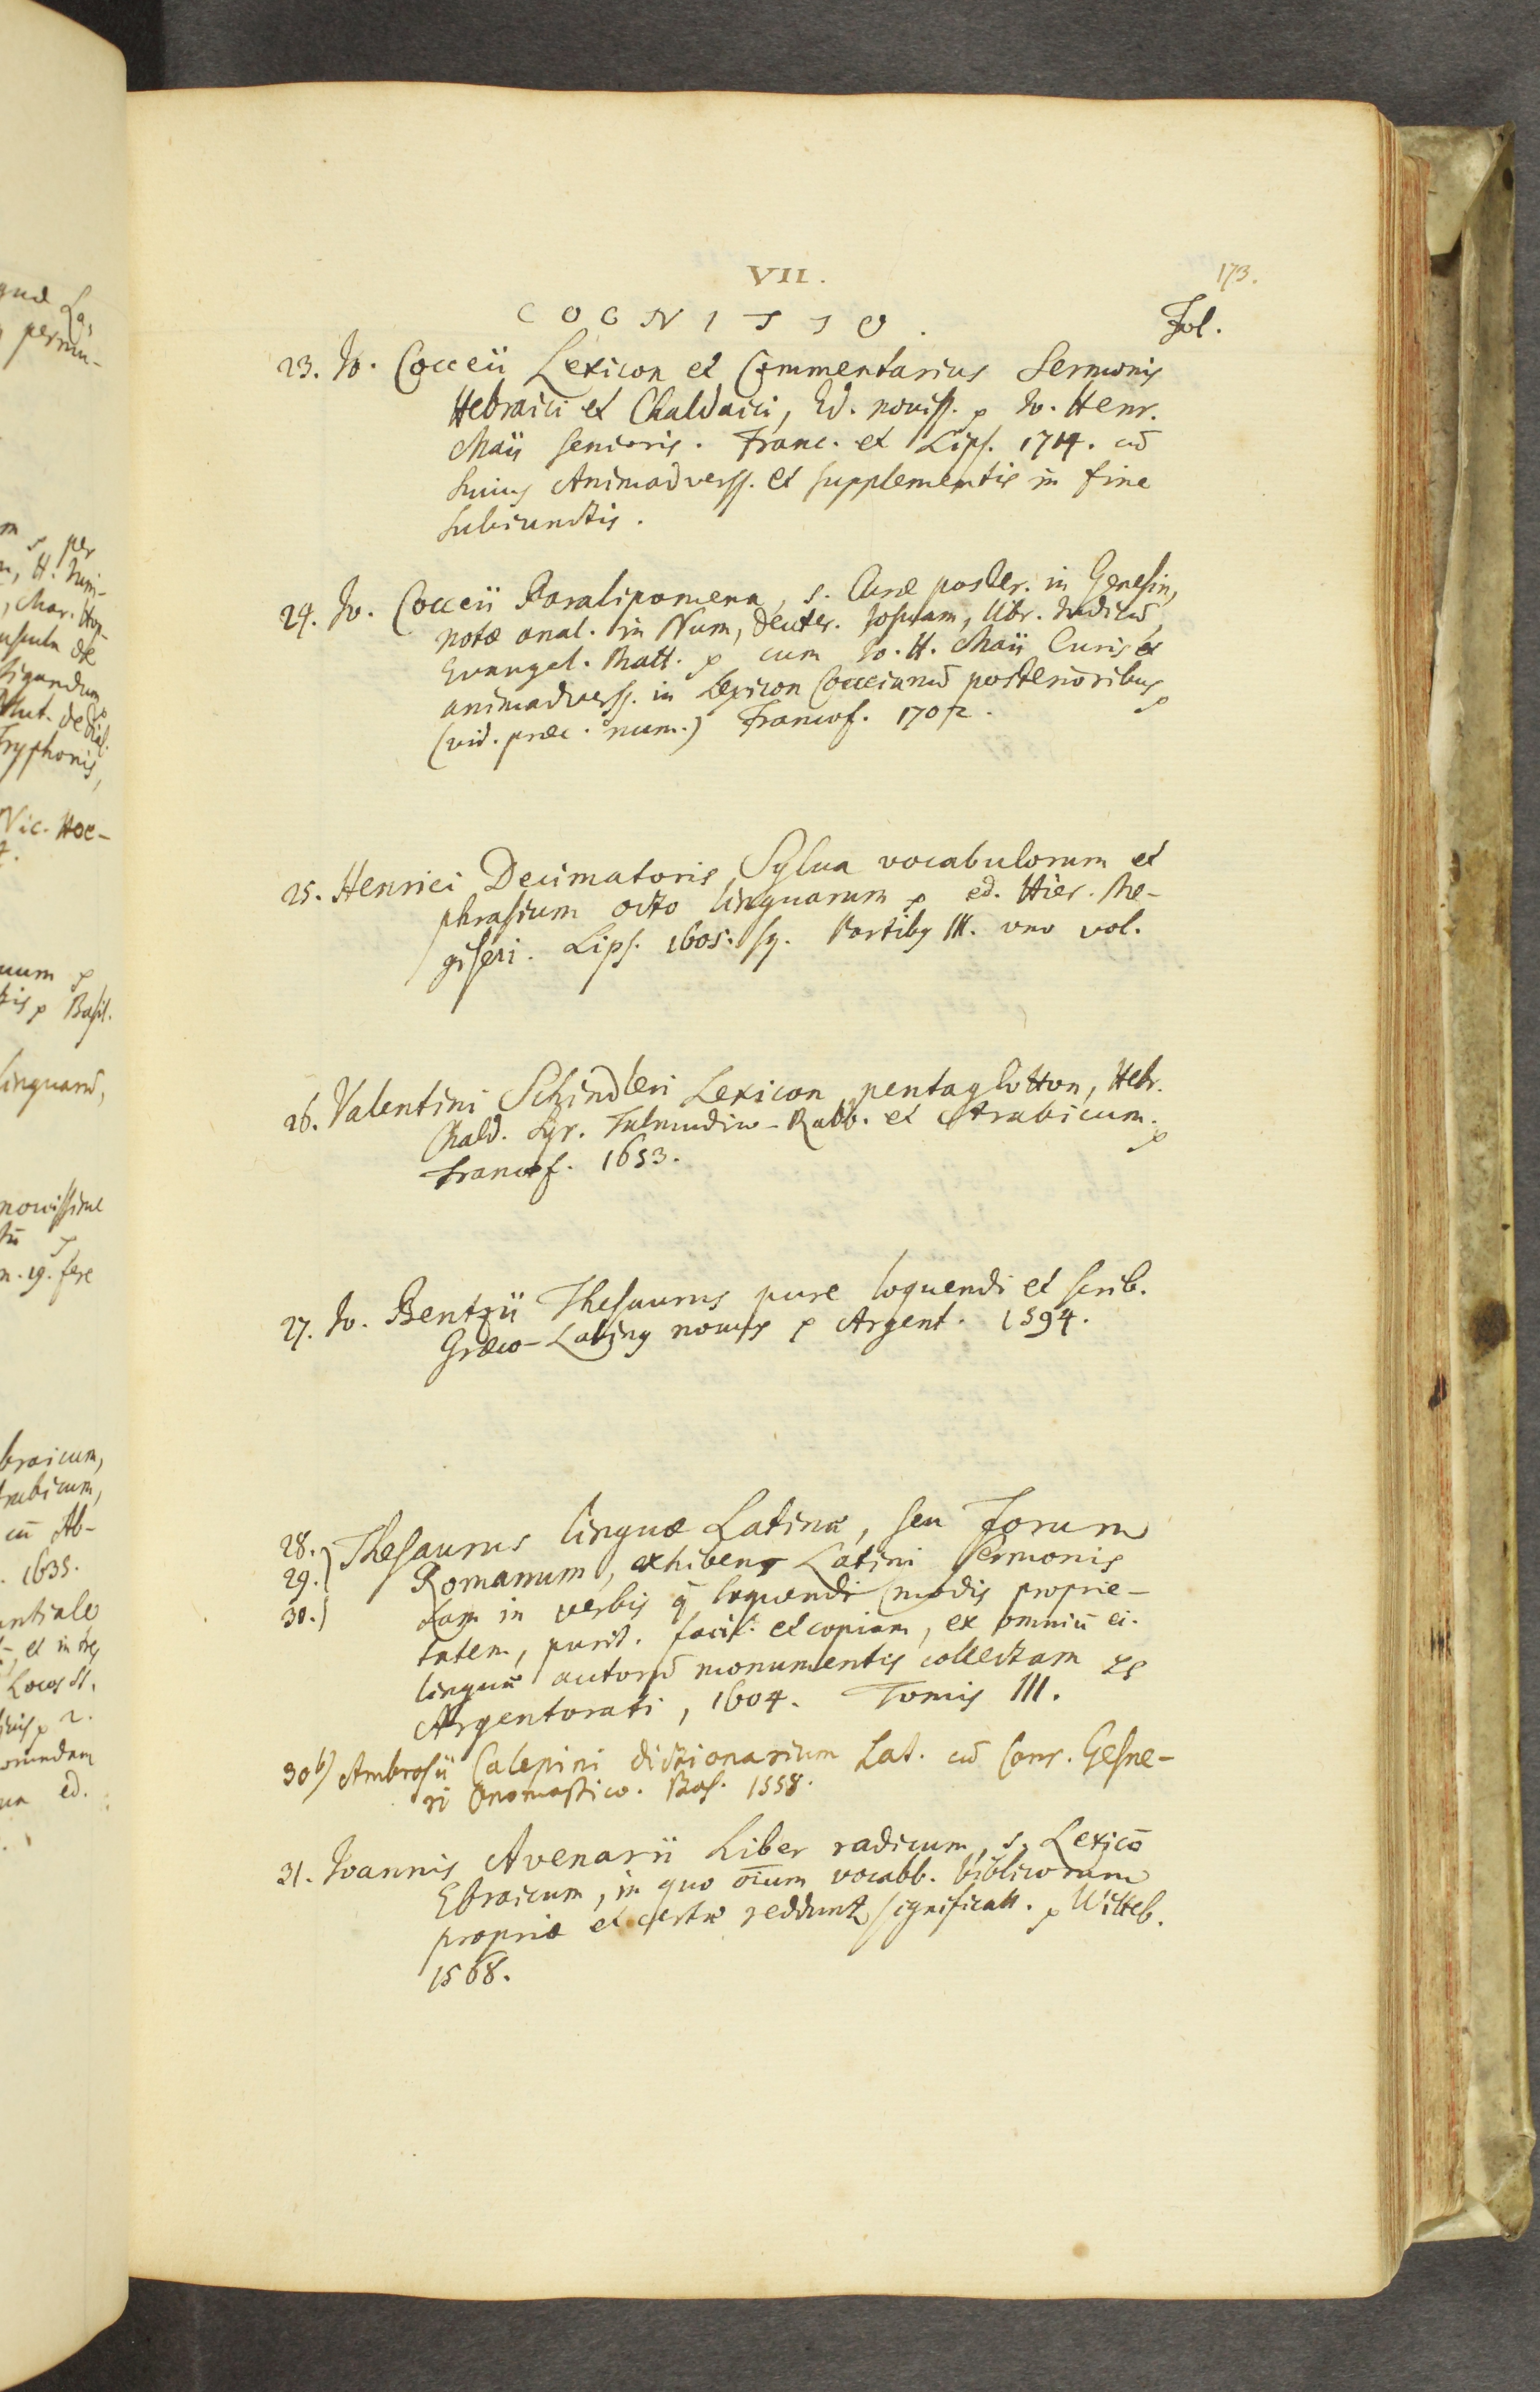 VII.
173.
COGNITIO.
Fol.
23. Jo. Cocceii Lexicon et Commentarius Sermonis
Hebraici et Chaldaici, Ed. noviss. p Jo. Henr.
Maii senioris. Franc. et Lips. 1714. cū
huius Animadverss. et supplementis in fine
subiunctis.
24. Jo. Cocceii Paralipomena, s. Curæ poster. in Genesin,
notæ anal. in Num, Deuter. Josuam, libr. Judicū,
Evangel. Matt. p cum Jo. H. Maii Curis et
animadverss. in Lexicon Cocceianū posterioribus p
(vid. præc. num.) Francof.
25. Henrici Decimatoris Sylua vocabulorum et
phrasium octo linguarum p ed. Hier. Me-
giseri. Lips. 1605. sq. Partibq III. uno vol.
26. Valentini Schindleri Lexicon pentaglotton, Hebr.
Chald. Syr. Talmudico-Rabb. et Arabicum. p
Francof. 1653.
27. Jo. Bentzii Thesaurus pure loquendi et scrib.
Græco-Latinq novus p Argent. 1594.
28. Thesaurus linguæ Latinæ, seu Forum
29. Romanum, exhibens Latini Sermonis
30. tam in verbis q̄ loquendi modis proprie-
tatem, purit. facil. et copiam, ex omniū ei.
linguæ autorū monumentis collectam
Argentorati, 1604. Tomis III.
30 b) Ambrosii Calepini dictionarium Lat. cū Conr. Gesne-
ri Onomastico. Bas. 1558.
31. Joannis Avenarii Liber radicum, s. Lexicō
Ebraicum, in quo oīum vocabb. biblicorum
propriæ et certæ reddunt significatt. p Witteb.
1568.